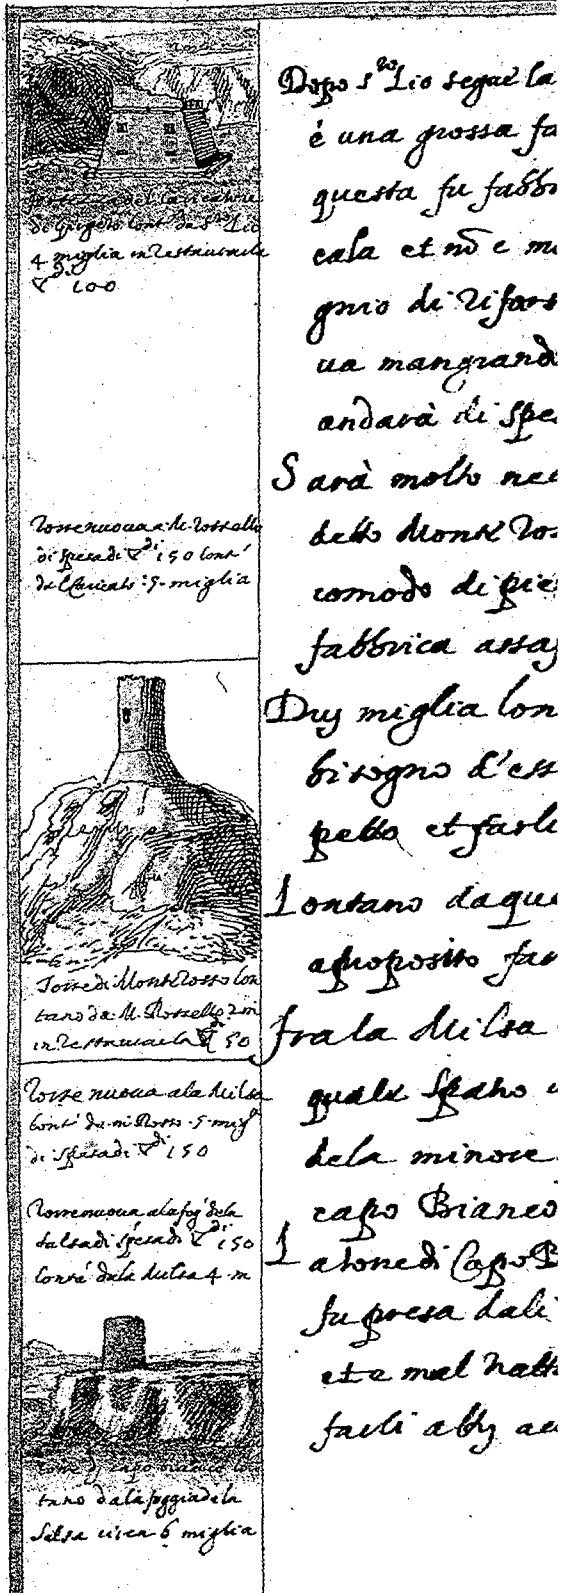 Fortezza del Caricatore
di Gurgento lont: da S.to Lio
4 miglia in restaurarla
di 100
Torre nuova a M. Rossello
di spesa di 150 lont:
dal Caricato: 5 miglia
Torre di Monte Rosso lon
tano da M. Rossello 2 m
in restaurarla 50
Torre nuova ala Milsa
lont: da m: Rosso 5 migl
di spesa di di 150
Torre nuova ala fog: dela
salsa di spesa di di 150
lont: dala Milsa 4 m
Torre di capo
tano dala foggia dela
Salsa circa 6 miglia
Dopo S.to Lio segue la
è una grossa fa
questa fu fabbr
cala et nõ e m
gnio di rifar
ua mangiand
andarà di spe
Sarà molto ne
detto Monte Ro
comodo di pie
fabbrica assa
Duj miglia lon
bisogno d'ess
petto et farli
Lontano da que
aproposito far
fra la Milsa
quale spatio
dela minore
capo Bianco
La torre di Capo B
fu presa dali
et e mal
farli